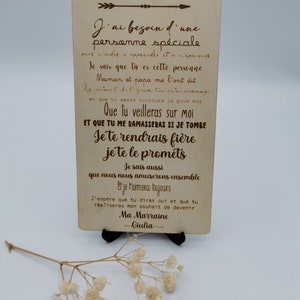 J'ai besoin d'une
personne spéciale
pour m'aider à apprendre et à
Je sais que tu es cette personne
Maman et papa me l'ont dit
Ils m'ont dit que tu m'aimeras
et que tu seras toujours là pour moi
Que tu veilleras sur moi
ET QUE TU ME RAMASSERAS SI JE TOMBE
Je te rendrais fière
je te le promets
Je sais aussi
que nous nous amuserons ensemble
Et je t'aimerai toujours
J'espère que tu diras oui et que tu
réaliseras mon souhait de devenir
Ma Marraine
Giulia